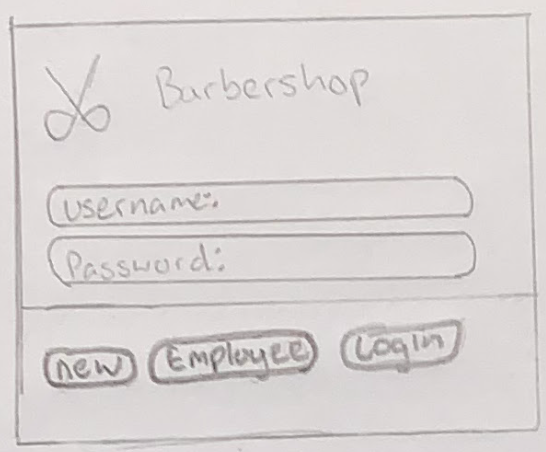 Barbershop
username:
Password:
new Employee Login